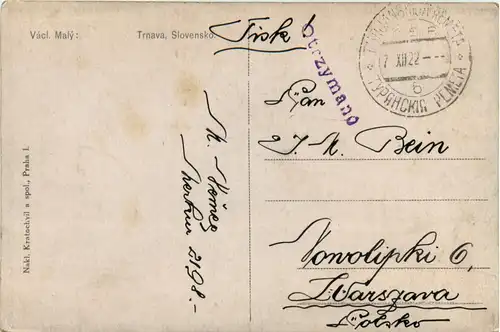 Václ. Malý:
Trnava, Slovensko.
Tisk!
Otrzymano
7 XII 22
6
ТУРЯНСКІѢ РЕМЕТА
Pan
J. M. Bein
Nowolipki 6,
Warszava
Polsko
Nakl. Kratochvíl a spol., Praha I.